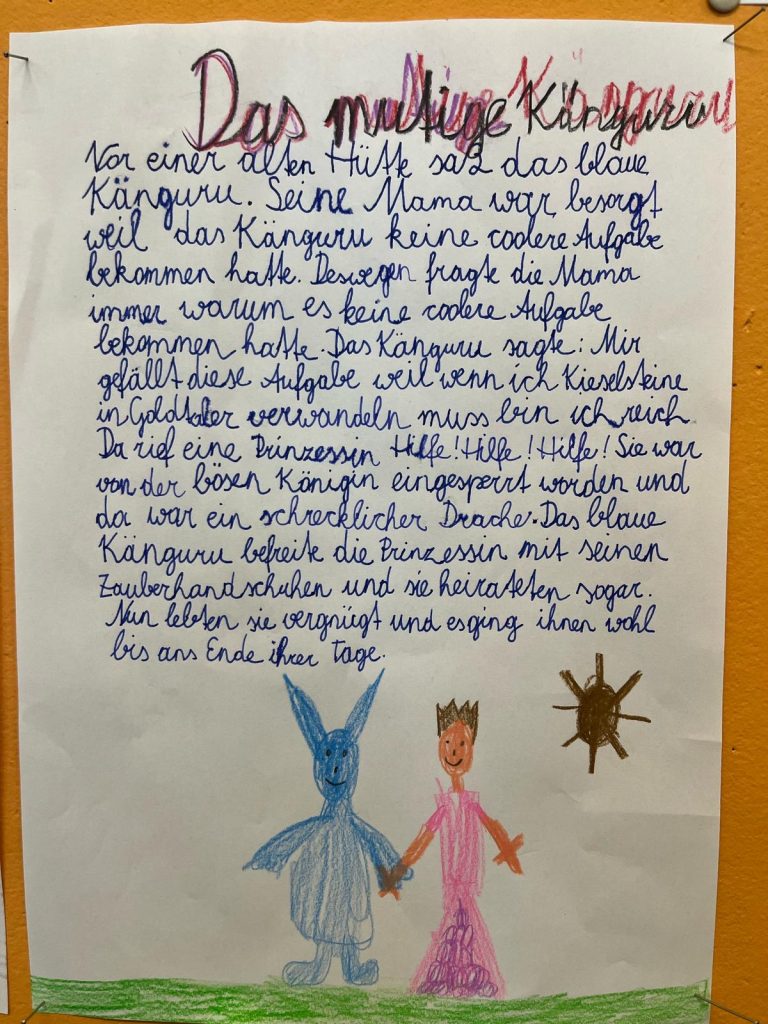 Das mutige Känguru
Vor einer alten Hütte saß das blaue
Känguru. Seine Mama war besorgt
weil das Känguru keine coolere Aufgabe
bekommen hatte. Deswegen fragte die Mama
immer warum es keine coolere Aufgabe
bekommen hatte. Das Känguru sagte: Mir
gefällt diese Aufgabe weil wenn ich Kieselsteine
in Goldtaler verwandeln muss bin ich reich
Da rief eine Prinzessin Hilfe! Hilfe! Hilfe! Sie war
von der bösen Königin eingesperrt worden und
da war ein schrecklicher Drache. Das blaue
Känguru befreite die Prinzessin mit seinen
Zauberhandschuhen und sie heirateten sogar.
Nun lebten sie vergnügt und es ging ihnen wohl
bis ans Ende ihrer Tage.